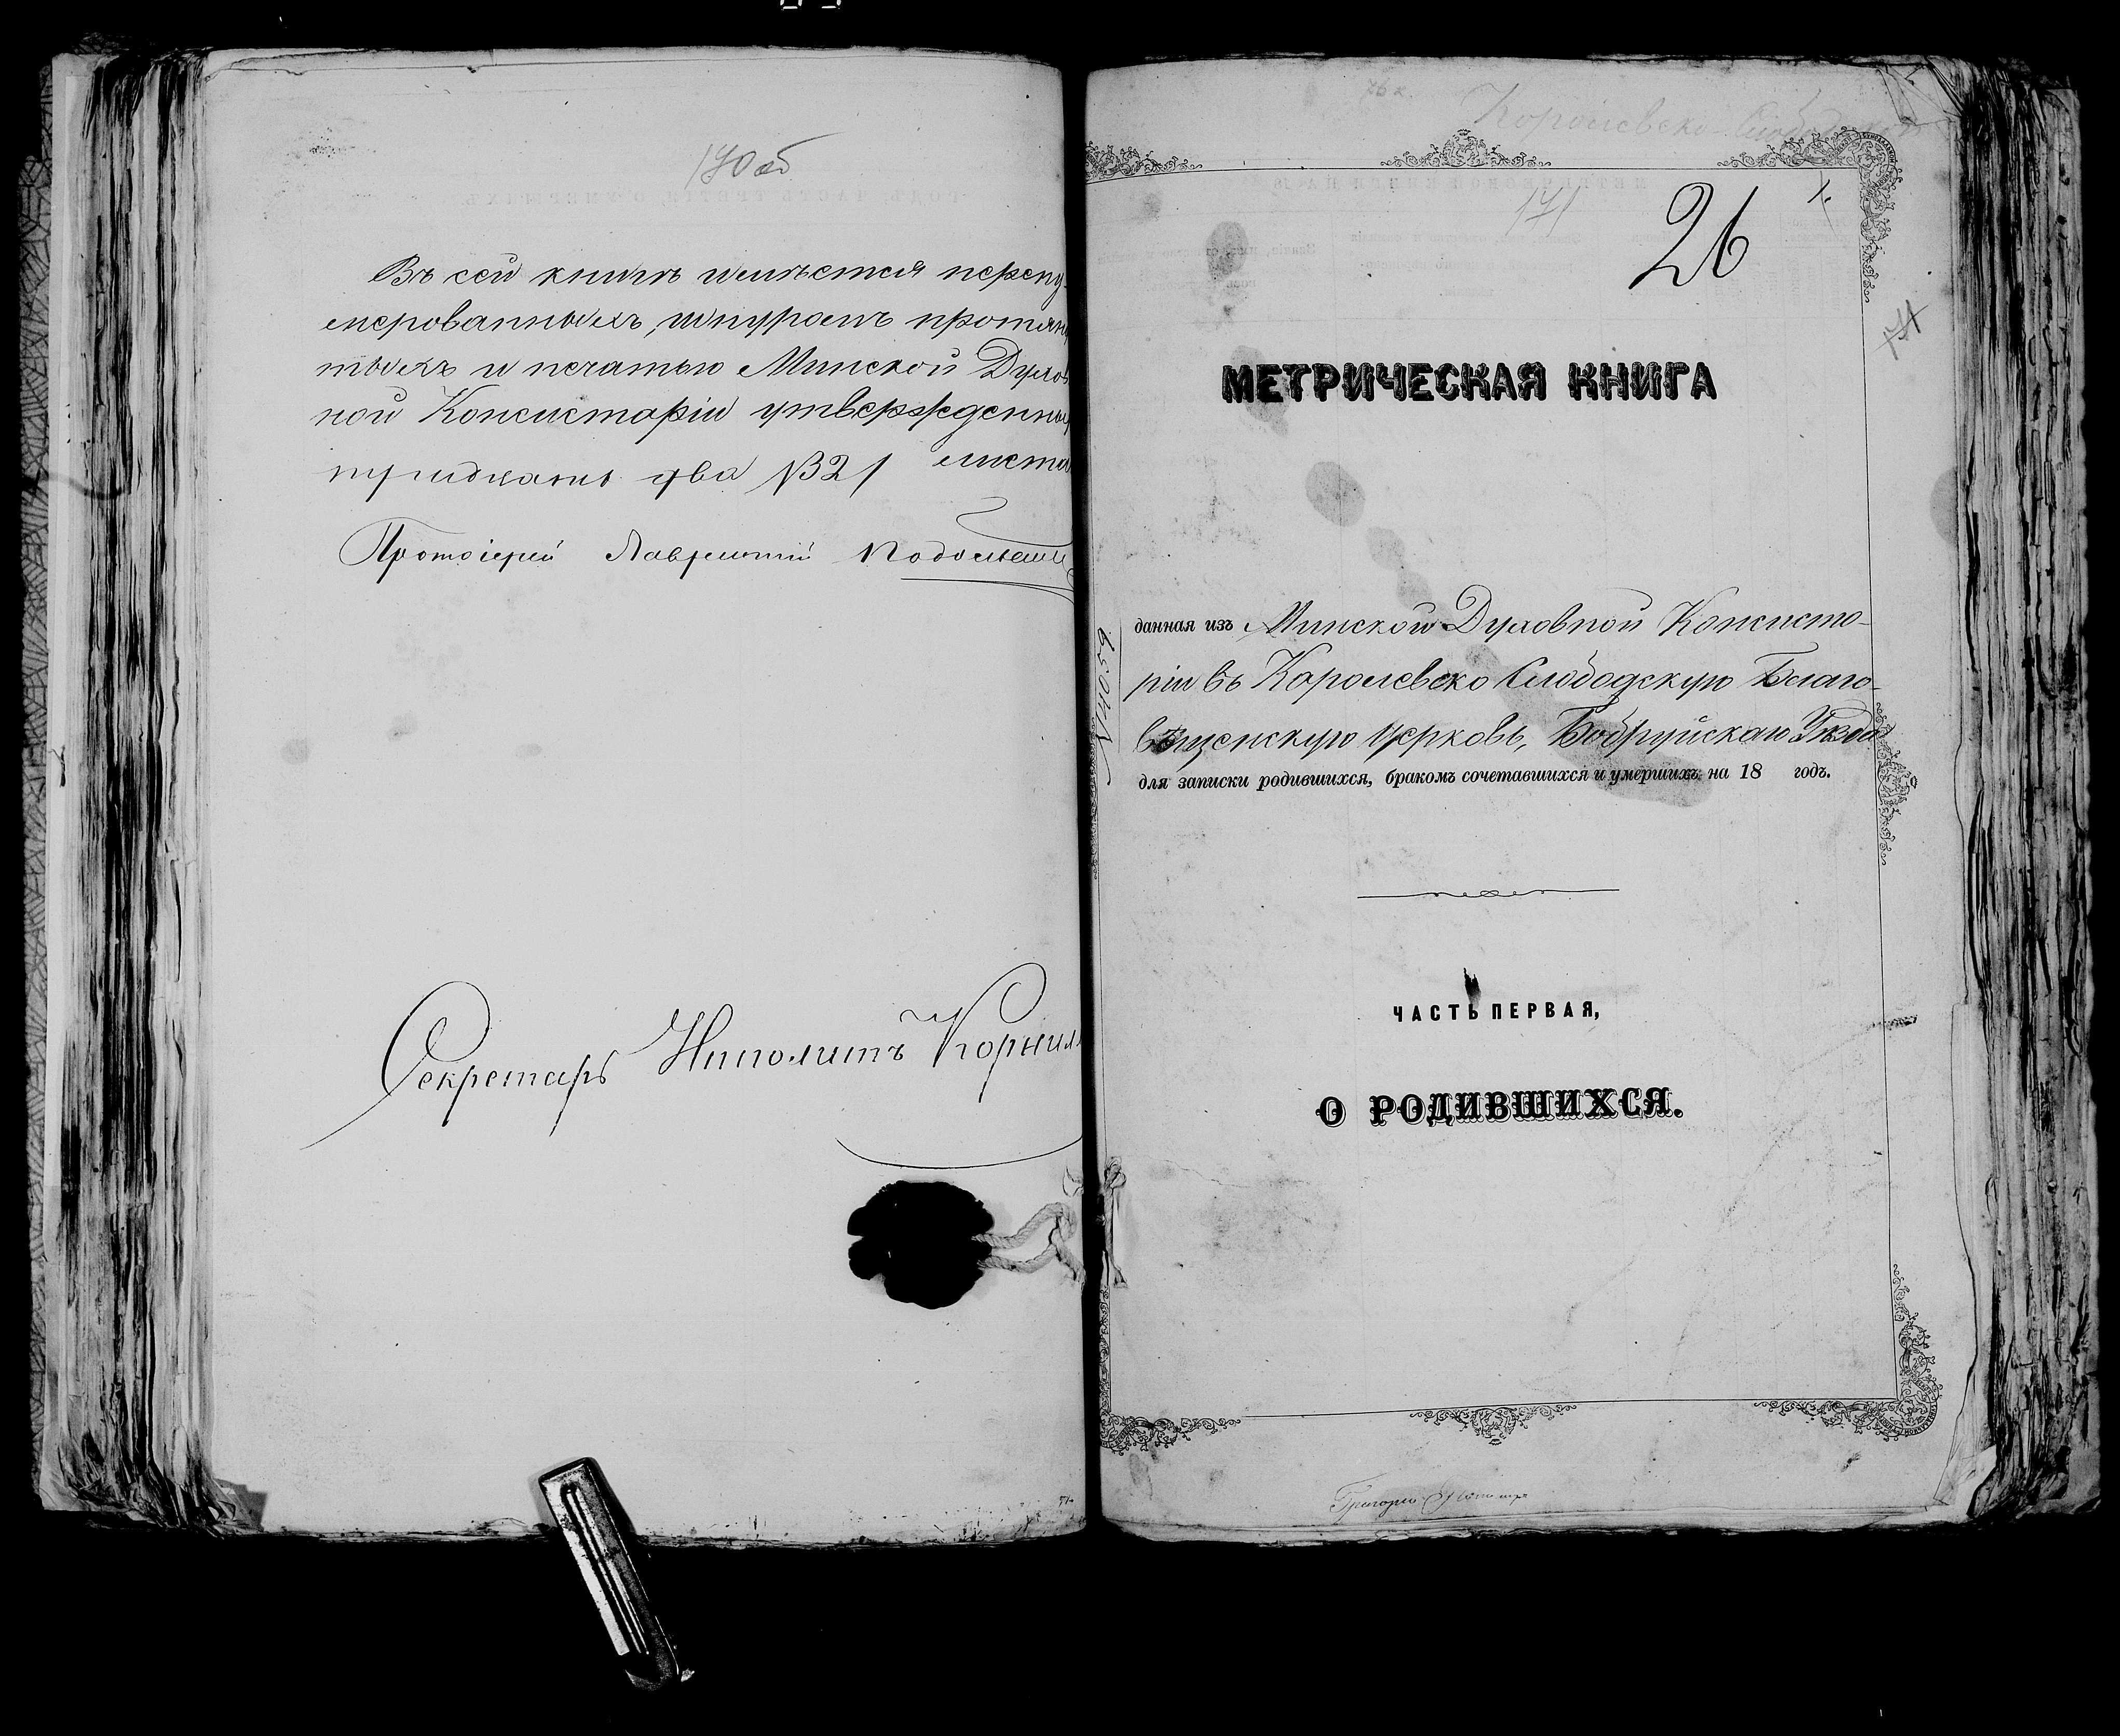 170 об
Въ сей книгѣ имѣется перену-
мерованныхъ, шнуромъ протяну
тыхъ и печатью Минской Духов
ной Консисторіи утвержденны
тридцать два /32/ листа
Протоіерей Лаврентій
Секретарь Ипполитъ Корнил
Королевско Слободск
171
26
1.
МЕТРИЧЕСКАЯ КНИГА
данная изъ Минской Духовной Консисто-
ріи въ Королевско Слободскую Благо-
вѣщенскую церковь, Бобруйскаго Уѣзда
для записки родившихся, бракомъ сочетавшихся и умершихъ на 18 годъ.
ЧАСТЬ ПЕРВАЯ,
О РОДИВШИХСЯ.